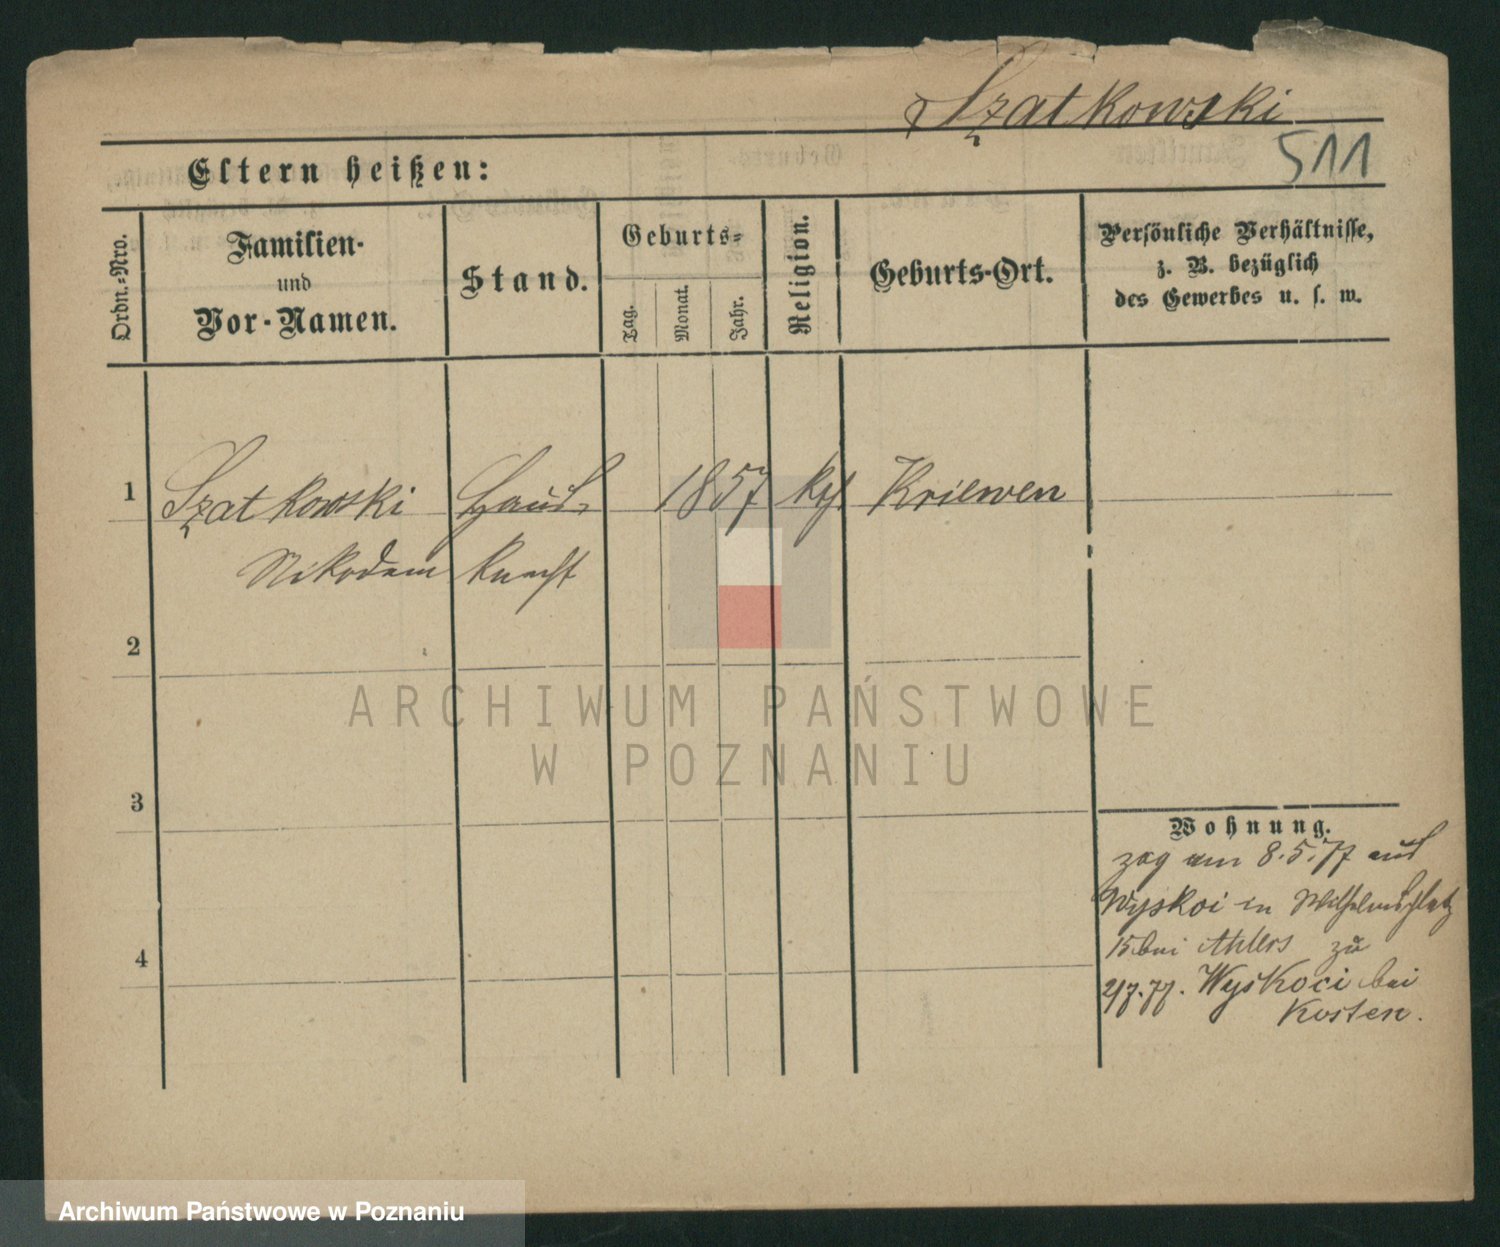 Szatkowski
511
Eltern heißen:
Ordn.-Nro.
Familien-
und
Vor-Namen.
Stand.
Geburts-
Tag.
Monat.
Jahr.
Religion.
Geburts-Ort.
Persönliche Verhältnisse,
z. B. bezüglich
des Gewerbes u. s. w.
1 Szatkowski Haus- 1857 kth. Kriewen
Nikodem knecht
2
3
4
Wohnung.
zog am 8.5.77 aus
Wyskoi in Wilhelmsplatz
15 bei Ahlers zu
2/7.77. Wyskoci bei
Kosten.
ARCHIWUM PAŃSTWOWE
W POZNANIU
Archiwum Państwowe w Poznaniu